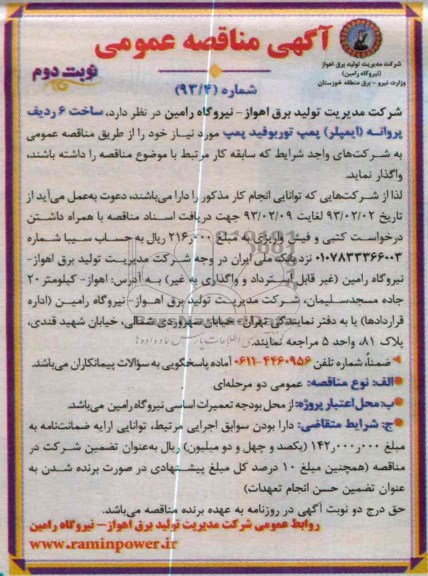 آگهی مناقصه عمومی
شرکت مدیریت تولید برق اهواز
(نیروگاه رامین)
وزارت نیرو - برق منطقه خوزستان
نوبت دوم
شماره (۹۳/۴)
شرکت مدیریت تولید برق اهواز- نیروگاه رامین در نظر دارد، ساخت ۶ ردیف
پروانه (ایمپلر) پمپ توربوفید پمپ مورد نیاز خود را از طریق مناقصه عمومی
به شرکت‌های واجد شرایط که سابقه کار مرتبط با موضوع مناقصه را داشته باشند،
واگذار نماید.
لذا از شرکت‌هایی که توانایی انجام کار مذکور را دارا می‌باشند، دعوت به‌عمل می‌آید از
تاریخ ۹۳/۰۲/۰۲ لغایت ۹۳/۰۲/۰۹ جهت دریافت اسناد مناقصه با همراه داشتن
درخواست کتبی و فیش واریزی به مبلغ ۲۱۶٫۰۰۰ ریال به حساب سیبا شماره
۰۱۰۷۸۳۳۳۶۶۰۰۳ نزد بانک ملی ایران در وجه شرکت مدیریت تولید برق اهواز-
نیروگاه رامین (غیر قابل استرداد و واگذاری به غیر) به آدرس: اهواز- کیلومتر ۲۰
جاده مسجدسلیمان، شرکت مدیریت تولید برق اهواز- نیروگاه رامین (اداره
قراردادها) یا به دفتر نمایندگی تهران- خیابان سهروردی شمالی، خیابان شهید قندی،
پلاک ۸۱، واحد ۵ مراجعه نمایند.
ضمناً، شماره تلفن ۴۴۶۰۹۵۶-۰۶۱۱ آماده پاسخگویی به سؤالات پیمانکاران می‌باشد.
الف: نوع مناقصه: عمومی دو مرحله‌ای
ب: محل اعتبار پروژه: از محل بودجه تعمیرات اساسی نیروگاه رامین می‌باشد.
ج: شرایط متقاضی: دارا بودن سوابق اجرایی مرتبط، توانایی ارایه ضمانت‌نامه به
مبلغ ۱۴۲٫۰۰۰٫۰۰۰ (یکصد و چهل و دو میلیون) ریال به‌عنوان تضمین شرکت در
مناقصه (همچنین مبلغ ۱۰ درصد کل مبلغ پیشنهادی در صورت برنده شدن به
عنوان تضمین حسن انجام تعهدات)
حق درج دو نوبت آگهی در روزنامه به عهده برنده مناقصه می‌باشد.
روابط عمومی شرکت مدیریت تولید برق اهواز- نیروگاه رامین
www.raminpower.ir